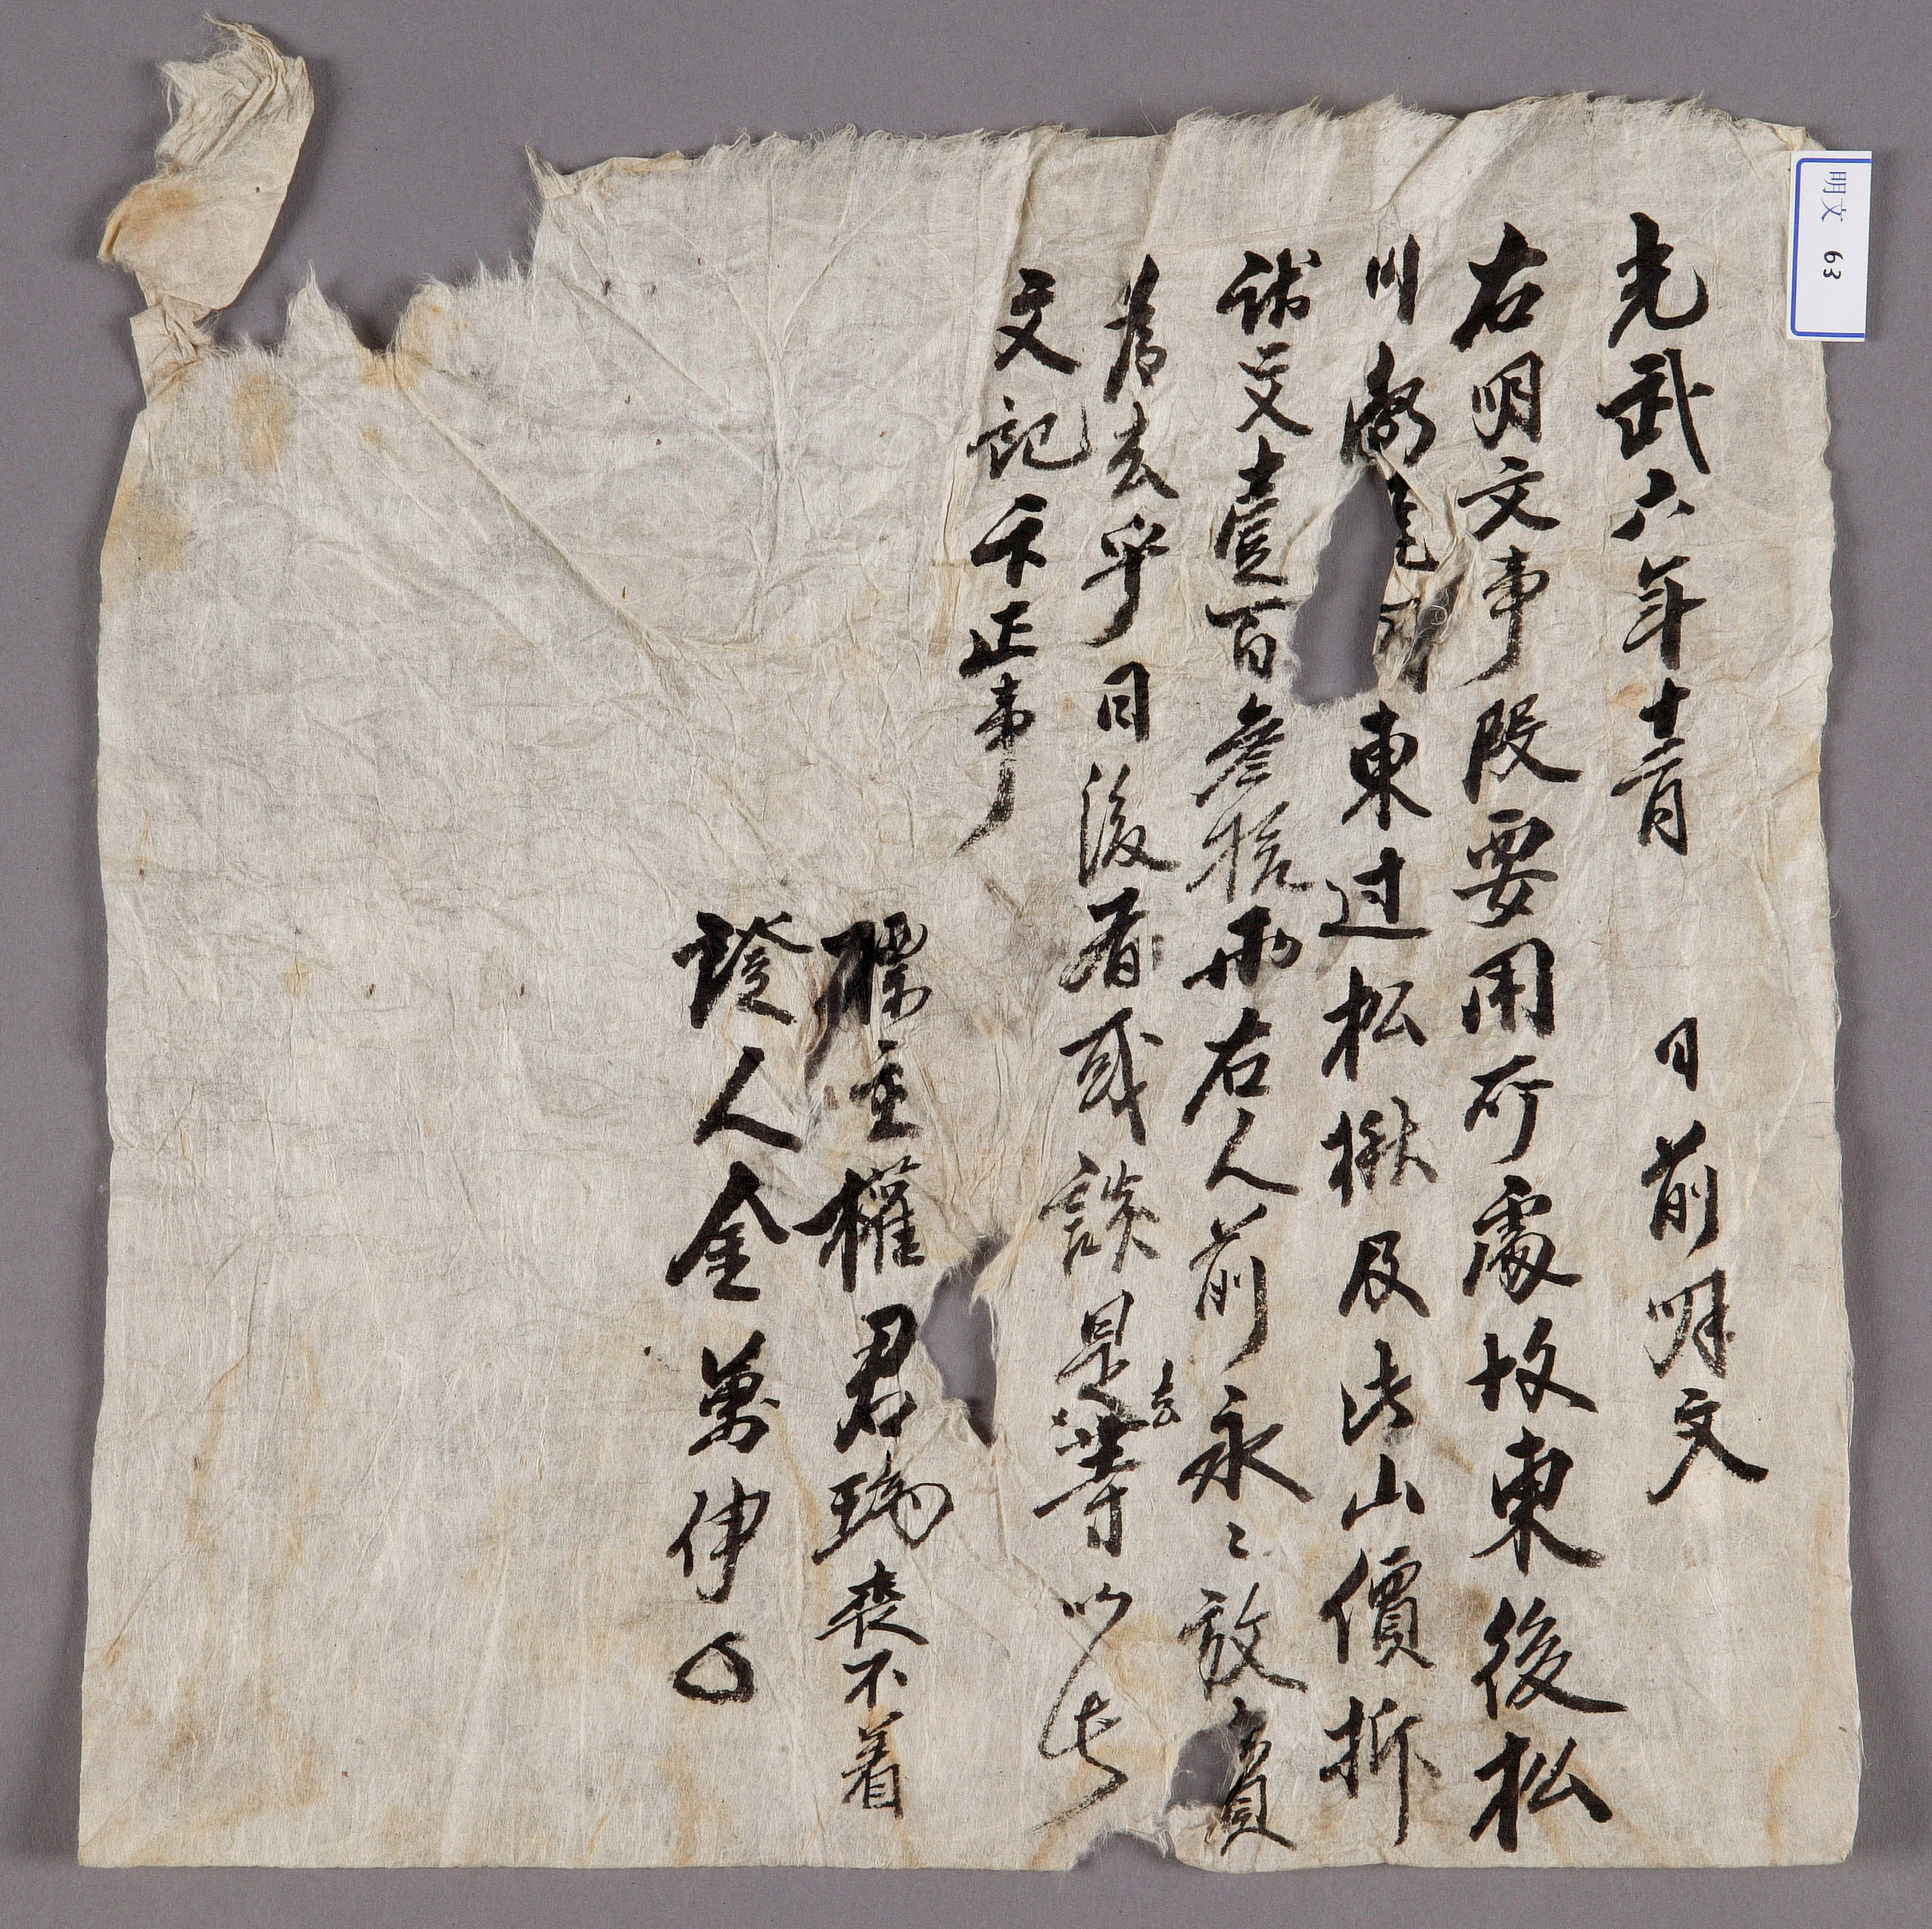 光武六年十二月 日 前明文
右明文事段要用所處故東後松
川 東过松楸及此山價折
錢文壹百叁拾兩右人前永〻放賣
爲去乎日後若或談是去等以此
文記卞正事
標主權君瑞喪不着
證人金萬伊
明文 63